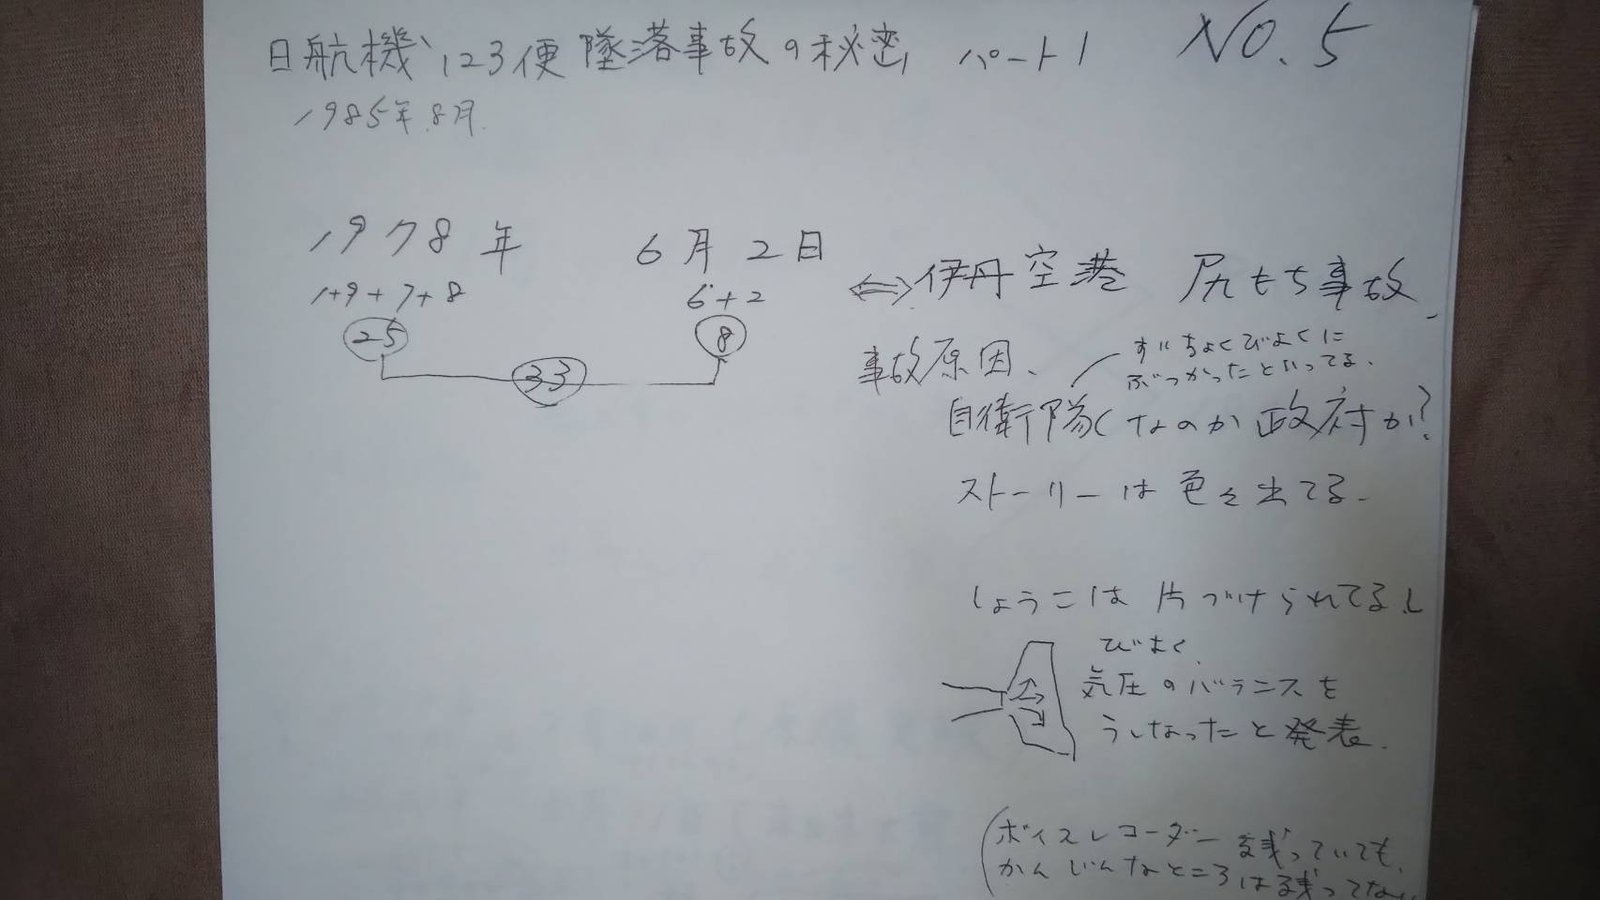 日航機、123便墜落事故の秘密 パート1 NO.5
1985年8月.
1978年 6月2日
1+9+7+8 6+2
25 8
33
⇔伊丹空港 尻もち事故.
事故原因、
すいちょくびよくに
ぶつかったといってる.
自衛隊なのか政府か?
ストーリーは色々出てる.
しょうこは片づけられてるし
びよく
気圧のバランスを
うしなったと発表.
(ボイスレコーダー残っていても、
かんじんなところは残ってない